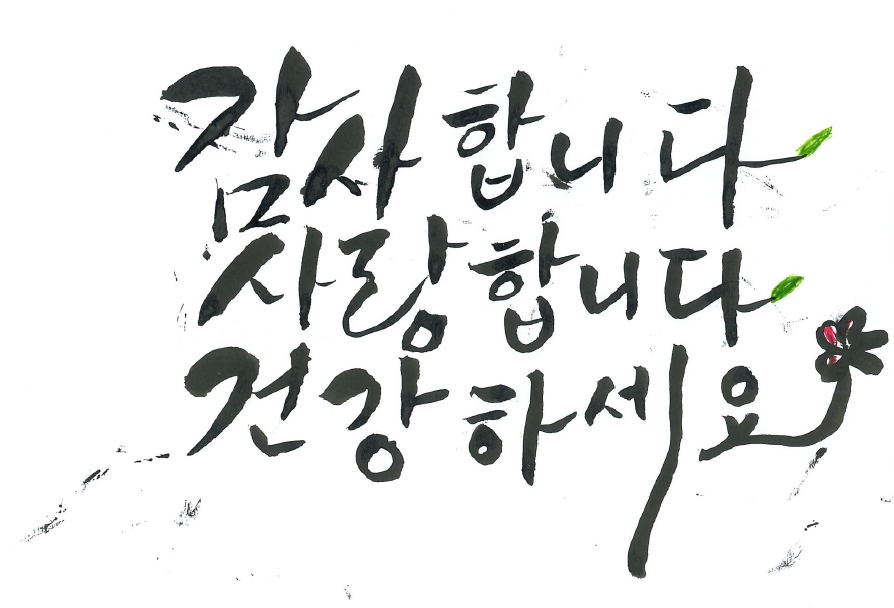 감사합니다
사랑합니다
건강하세요